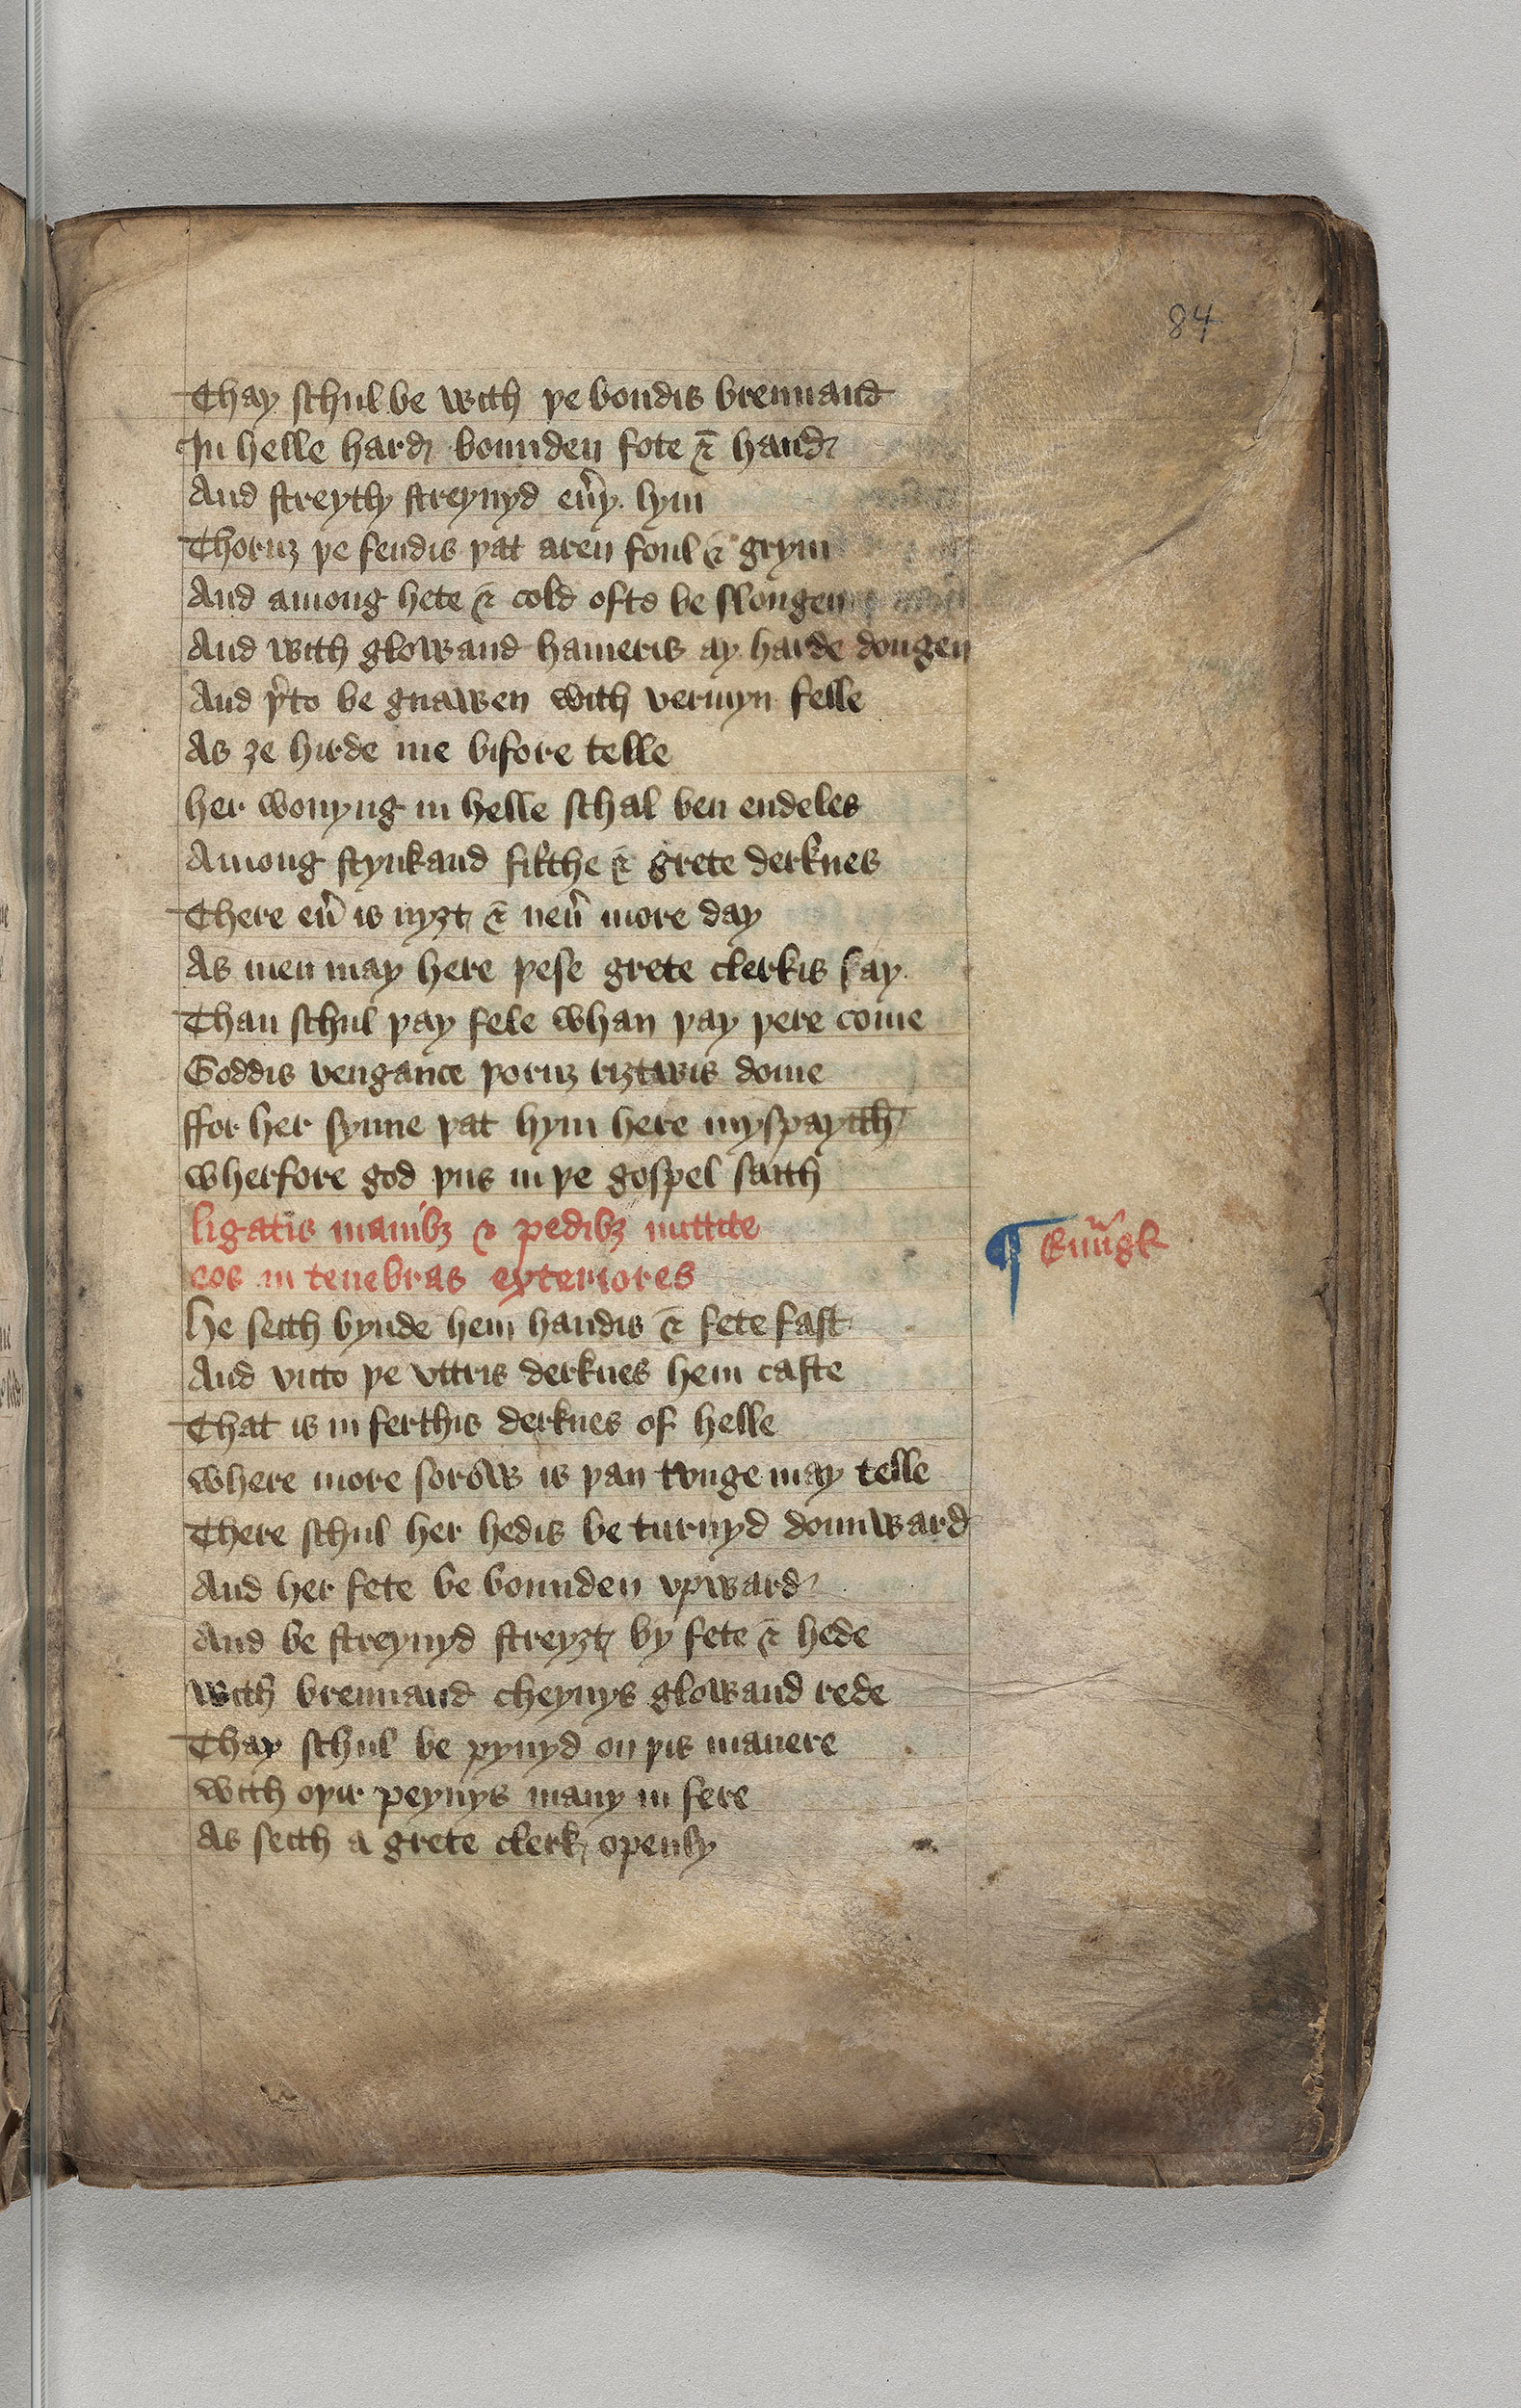 84
Thay schul be with þe bondis brennand
In helle hard bounden fote & hand
And streytly streynyd eu̾y lym
Thoruȝ þe fendis þat aren foul & grym
And among hete & cold ofte be slongen
And with glowand hameris ay harde dongen
And þ̾to be gnawen with vermyn felle
As ȝe hirde me bifore telle
her wonyng in helle schal ben endeles
Among stynkand filthe & grete derknes
There eu̾ is nyȝt & neu̾ more day
As men may here þese grete clerkis say
Than schul þay fele whan þay þere come
Goddis vengance þoruȝ riȝtwis dome
ffor her synne þat hym here myspayith
wherfore god þus in þe gospel saith
ligatis manibȝ & pedibȝ mittite
eos in tenebras exteriores
¶ Euu̾gk
He seith bynde hem handis & fete fast
And vnto þe vttris derknes hem caste
That is in ferthis derknes of helle
where more sorow is þan tonge may telle
There schul her hedis be turnyd dounward
And her fete be bounden vpward
And be streynyd streyȝt by fete & hede
with brennand cheynys glowand rede
Thay schul be pynyd on þis manere
with oþir peynys many in fere
As seith a grete clerk openly